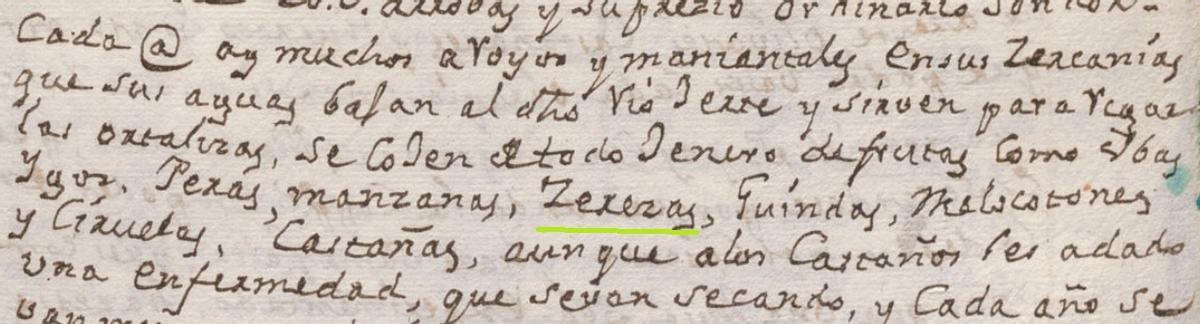 arrobas y su prezio ordinario son
Cada @ ay muchos aRoyos y maniantales en sus Zercanias
que sus aguas bajan al dho Rio Jerte y sirven para Regar
las ortalizas, se coJen de todo Jenero de frutas como Vbas
Ygos. Peras, manzanas, Zerezas, Guindas, Melocotones
y Ciruelas, Castañas, aunque a los Castaños les a dado
una enfermedad, que se van secando, y Cada año se
van